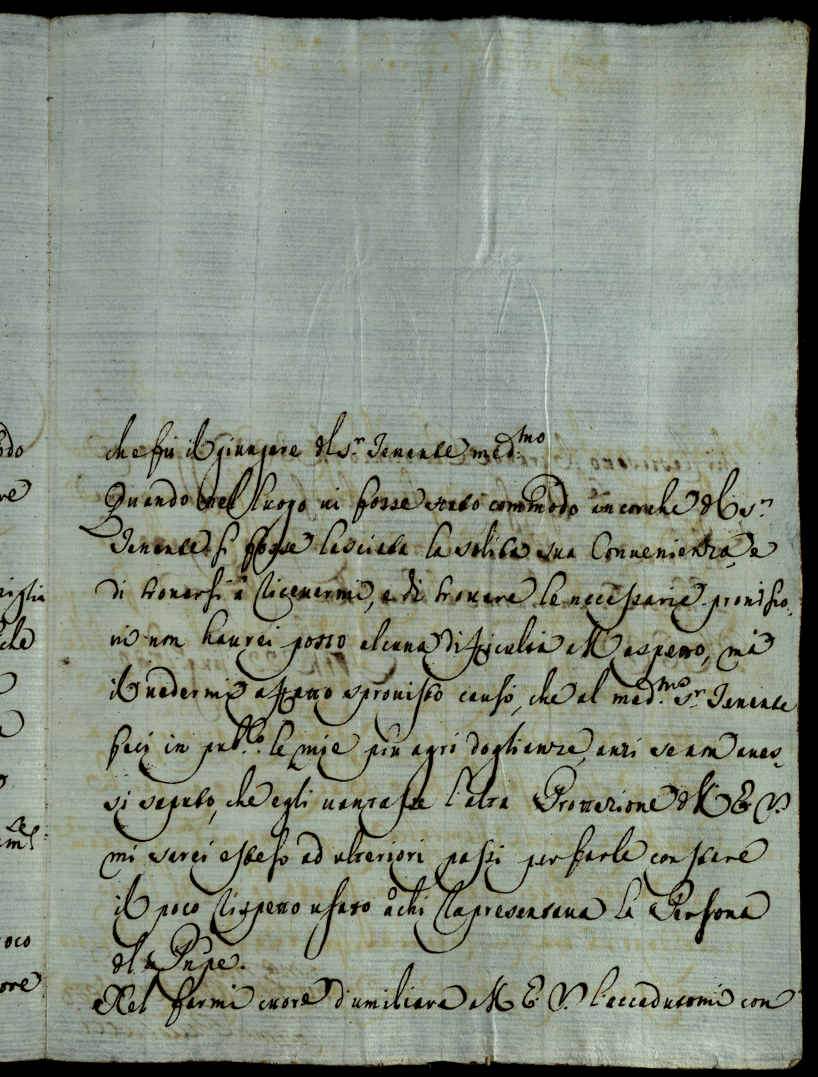 che fù il giungere del S.r Tenente med.mo
Quando nel luogo ui fosse stato commodo ancorche del S.r
Tenente si fosse lasciata la solita sua Conuenienza, e
di trouarsi à riceuermi, e di trouare le necessarie prouisio
ni non haurei posto alcuna difficultà all'aspetto, mà
il uedermi affatto sprouisto causò, che al med.mo S.r Tenente
feci in pub.co le mie più agri doglianze, anzi se non aues
si saputo, che egli uantasse l'alta Protezione dell'E. V.
mi sarei esteso ad ulteriori passi per farle constare
il poco rispetto usato à chi rapresentaua la Persona
del Pnpe.
Nel farmi cuore d'umiliare all'E. V. l'accadutomi con
odo
re
iglia
che
a
oco
ore